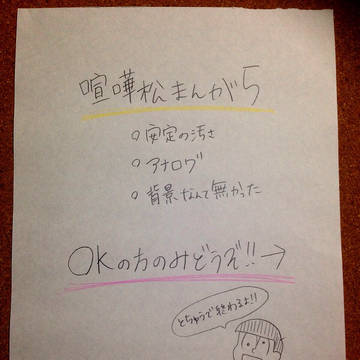 喧嘩松まんが5
○安定の汚さ
○アナログ
○背景なんて無かった
OKの方のみどうぞ!!→
とちゅうで終わるよ!!